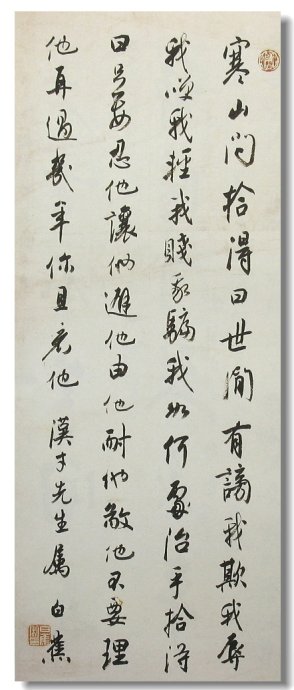 寒山問拾得曰世間有謗我欺我辱
我咲我輕我賤我騙我如何處治乎拾得
曰只要忍他讓他避他由他耐他敬他不要理
他再過幾年你且看他 漢才先生属 白蕉